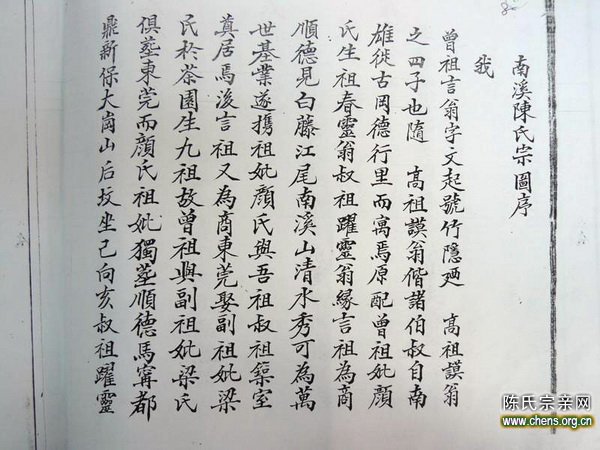 南溪陳氏宗圖序
我
曾祖言翁字文起號竹隱廼 高祖謨翁
之四子也隨 高祖謨翁偕諸伯叔自南
雄徙古岡德行里而寓焉原配曾祖妣顏
氏生祖春靈翁叔祖躍靈翁緣言祖為商
順德見白藤江尾南溪山清水秀可為萬
世基業遂攜祖妣顏氏與吾祖叔祖築室
奠居焉後言祖又為商東莞娶副祖妣梁
氏於茶園生九祖故曾祖與副祖妣梁氏
俱塟東莞而顏氏祖妣獨塟順德馬寗都
鼎新保大崗山后坟坐己向亥叔祖躍靈
陈氏宗亲网
www.chens.org.cn